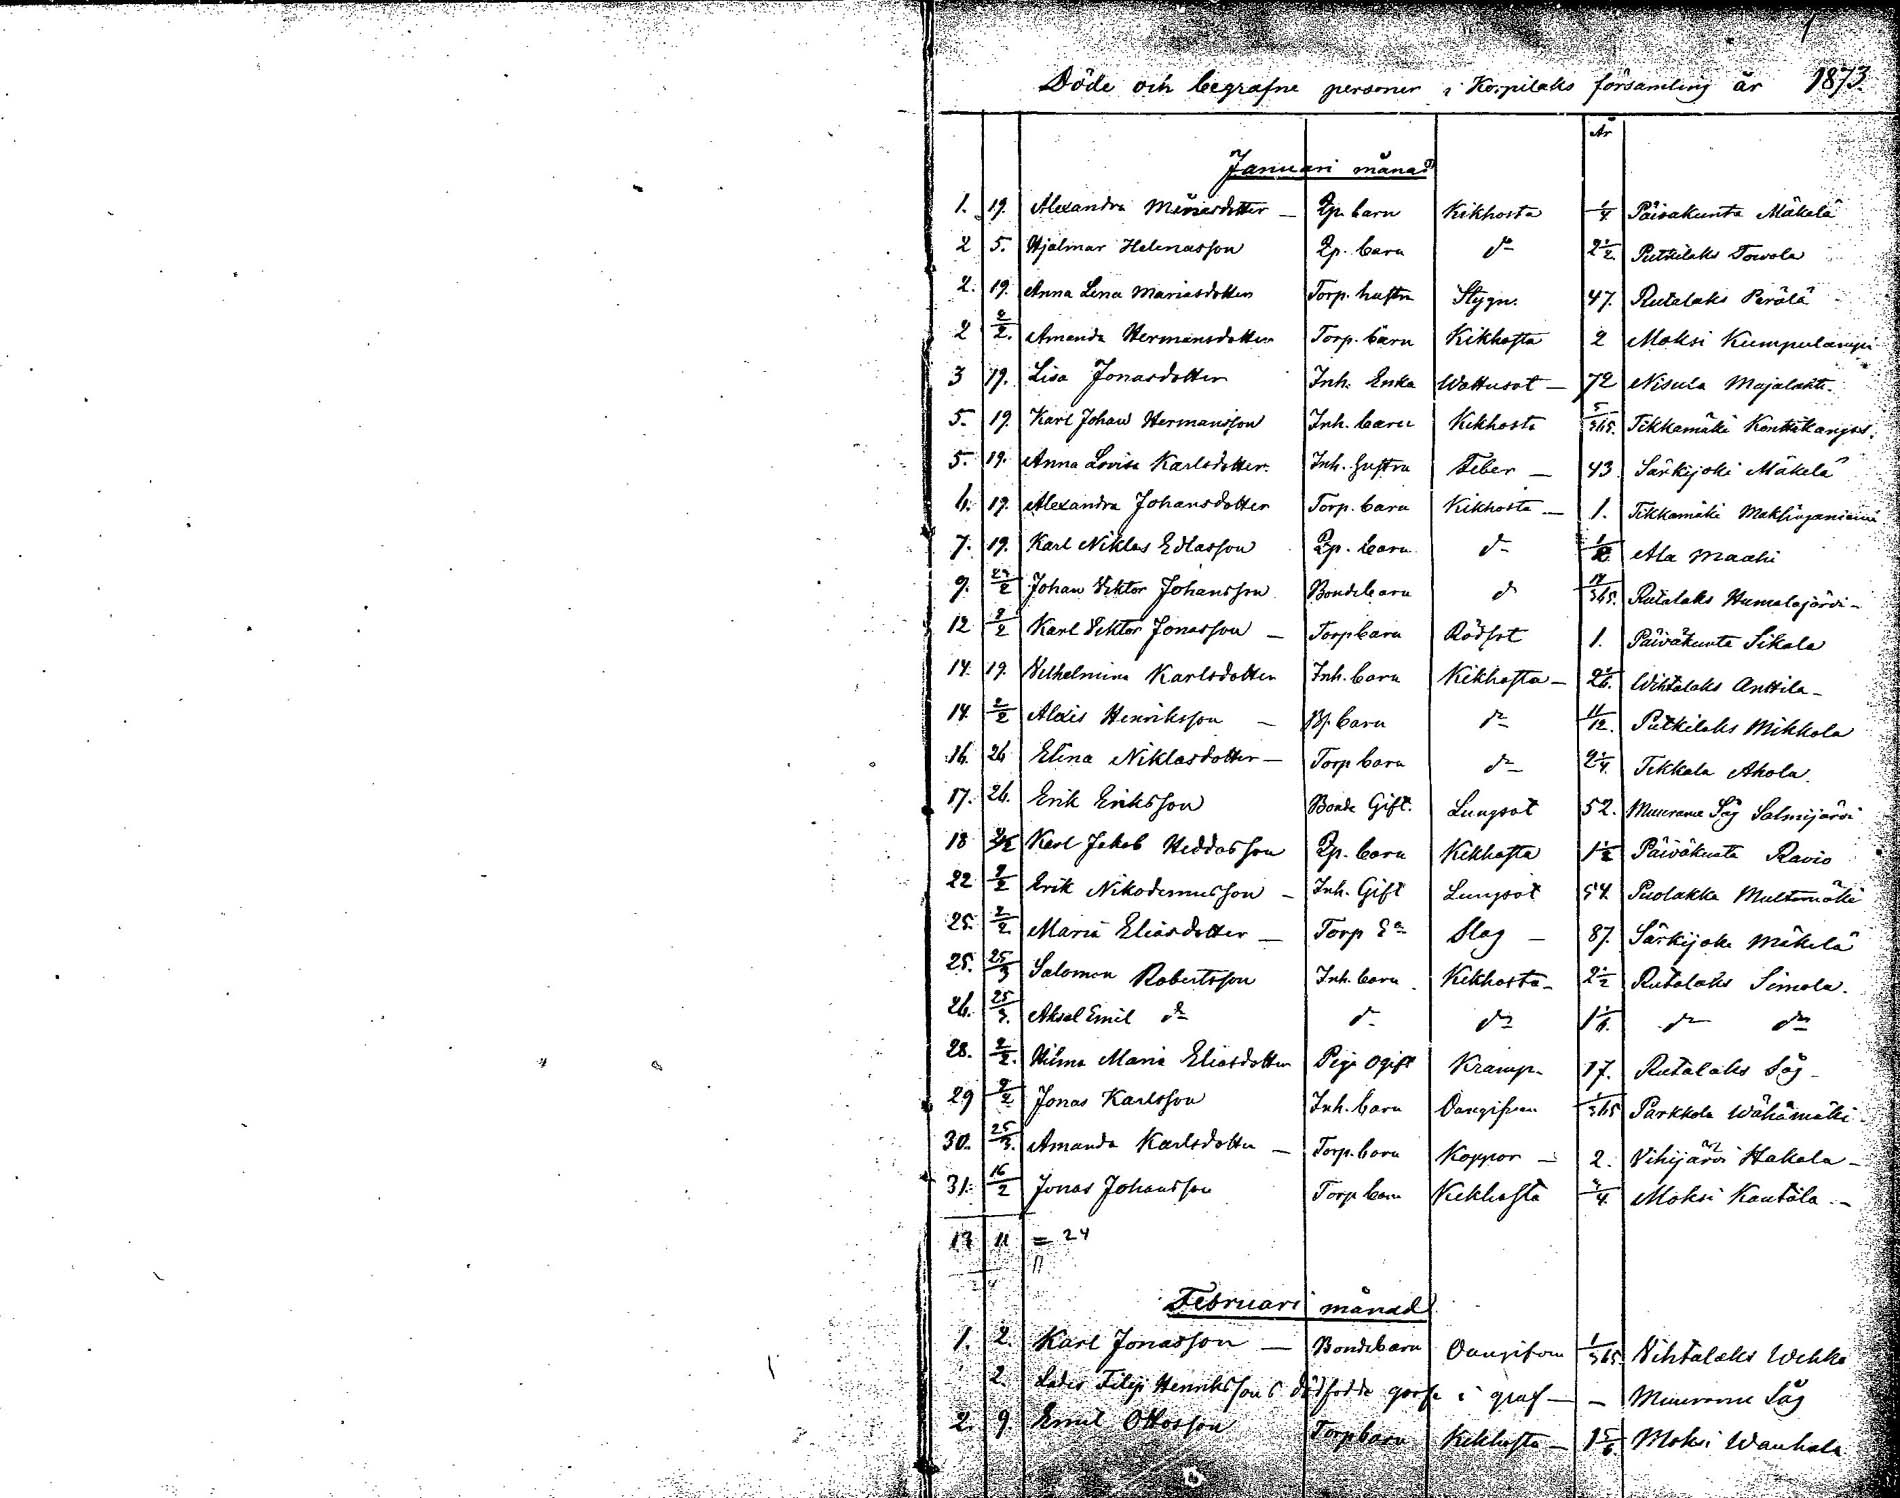 1
Döde och begrafne personer i Korpilaks församling år 1873.
År
Januari månad
1. 19. Alexandra Mariasdotter — Qp. barn Kikhosta 1/4 Päivakunta Mäkelä
2 5. Hjalmar Helenasson Qp. barn do 2 1/2 Putkilaks Toivola
2. 19. Anna Lena Mariasdotter Torp. hustru Stygn. 47. Rutalaks Perälä
2 2/2. Amanda Hermansdotter Torp. barn Kikhosta 2 Moksi Kumpulampi
3 19. Lisa Jonasdotter Inh. Enka Wattusot — 72 Nisula Majalahti.
5. 19. Karl Johan Hermansson Inh. barn Kikhosta 5/365. Tikkamäki Konttikangas.
5. 19. Anna Lovisa Karlsdotter. Inh. hustru Feber — 43 Särkijoki Mäkelä
6. 19. Alexandra Johansdotter Torp. barn Kikhosta — 1. Tikkamäki
7. 19. Karl Niklas Edlasson Qp. barn do Ala Maahi
9. Johan Viktor Johansson Bondebarn do 14/365. Rutalaks Humalajärvi —
12 2/2 Karl Viktor Jonasson — Torpbarn Rödsot 1. Päiväkunta Sikala
14. 19. Vilhelmina Karlsdotter Inh. barn Kikhosta — Wihtalaks Anttila —
14 2/2 Alexis Henriksson — Bp barn do 11/12. Putkilaks Mikkola
16. 26 Elina Niklasdotter — Torp barn do 2 1/4. Tikkala Ahola.
17. 26. Erik Eriksson Bonde Gift. Lungsot 52. Muurame Såg Salmijärvi
18 2/2 Karl Jakob Heddasson Qp. barn Kikhosta 1 1/2 Päiväkunta Ravio
22 2/2 Erik Nikodemusson — Inh. Gift Lungsot 54. Puolakka Multamäki
25. 2/2 Maria Eliasdotter — Torp Ea Slag — 87. Särkijoki Mäkelä
25. 25/3 Salomon Robertsson Inh. barn Kikhosta — 2 1/2 Rutalaks Simola.
26. 25/3. Aksel Emil do do do 1 1/6. do do
28. 2/2. Hilma Maria Eliasdotter Piga Ogift Kramp — 17. Rutalaks Såg —
29 2/2 Jonas Karlsson Inh. barn Oangifven 1/365 Parkkola Wähämäki —
30. 25/3. Amanda Karlsdotter — Torp. barn Koppor — 2. Vihijärvi Hakala —
31. 16/2 Jonas Johansson Torp barn Kikhosta 3/4 Moksi Kautala —
13 11 = 24
Februari månad
1. 2. Karl Jonasson — Bondebarn Oangifven 1/365. Vihtalaks Wehka
2. Filip Henrikssons dödfödde gosse i graf — — Muurame Såg
2. 9. Emil Ottosson Torpbarn Kikhosta — 1 5/6. Moksi Wanhala